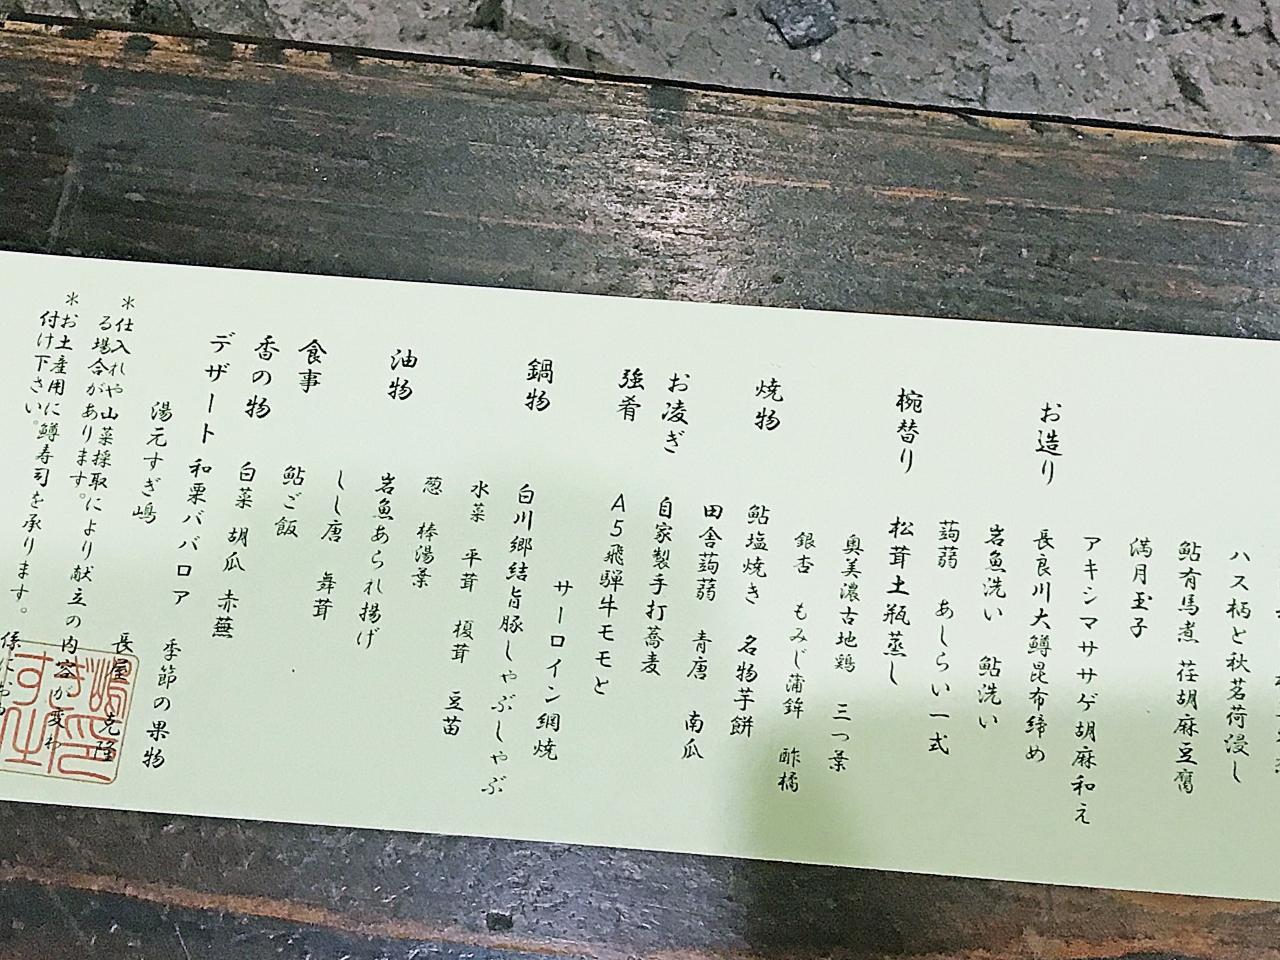 ハス柄と秋茗荷浸し
鮎有馬煮 荏胡麻豆腐
満月玉子
アキシマササゲ胡麻和え
お造り 長良川大鱒昆布締め
岩魚洗い 鮎洗い
蒟蒻 あしらい一式
椀替り 松茸土瓶蒸し
奥美濃古地鶏 三つ葉
銀杏 もみじ蒲鉾 酢橘
焼物 鮎塩焼き 名物芋餅
田舎蒟蒻 青唐 南瓜
お凌ぎ 自家製手打蕎麦
強肴 A5飛騨牛モモと
サーロイン網焼
鍋物 白川郷結旨豚しゃぶしゃぶ
水菜 平茸 榎茸 豆苗
葱 棒湯葉
油物 岩魚あられ揚げ
しし唐 舞茸
食事 鮎ご飯
香の物 白菜 胡瓜 赤蕪
デザート 和栗ババロア
季節の果物
湯元すぎ嶋
長屋 克隆
＊仕入れや山菜採取により献立の内容が変わ
る場合があります。
＊お土産用に鱒寿司を承ります。
付け下さい。